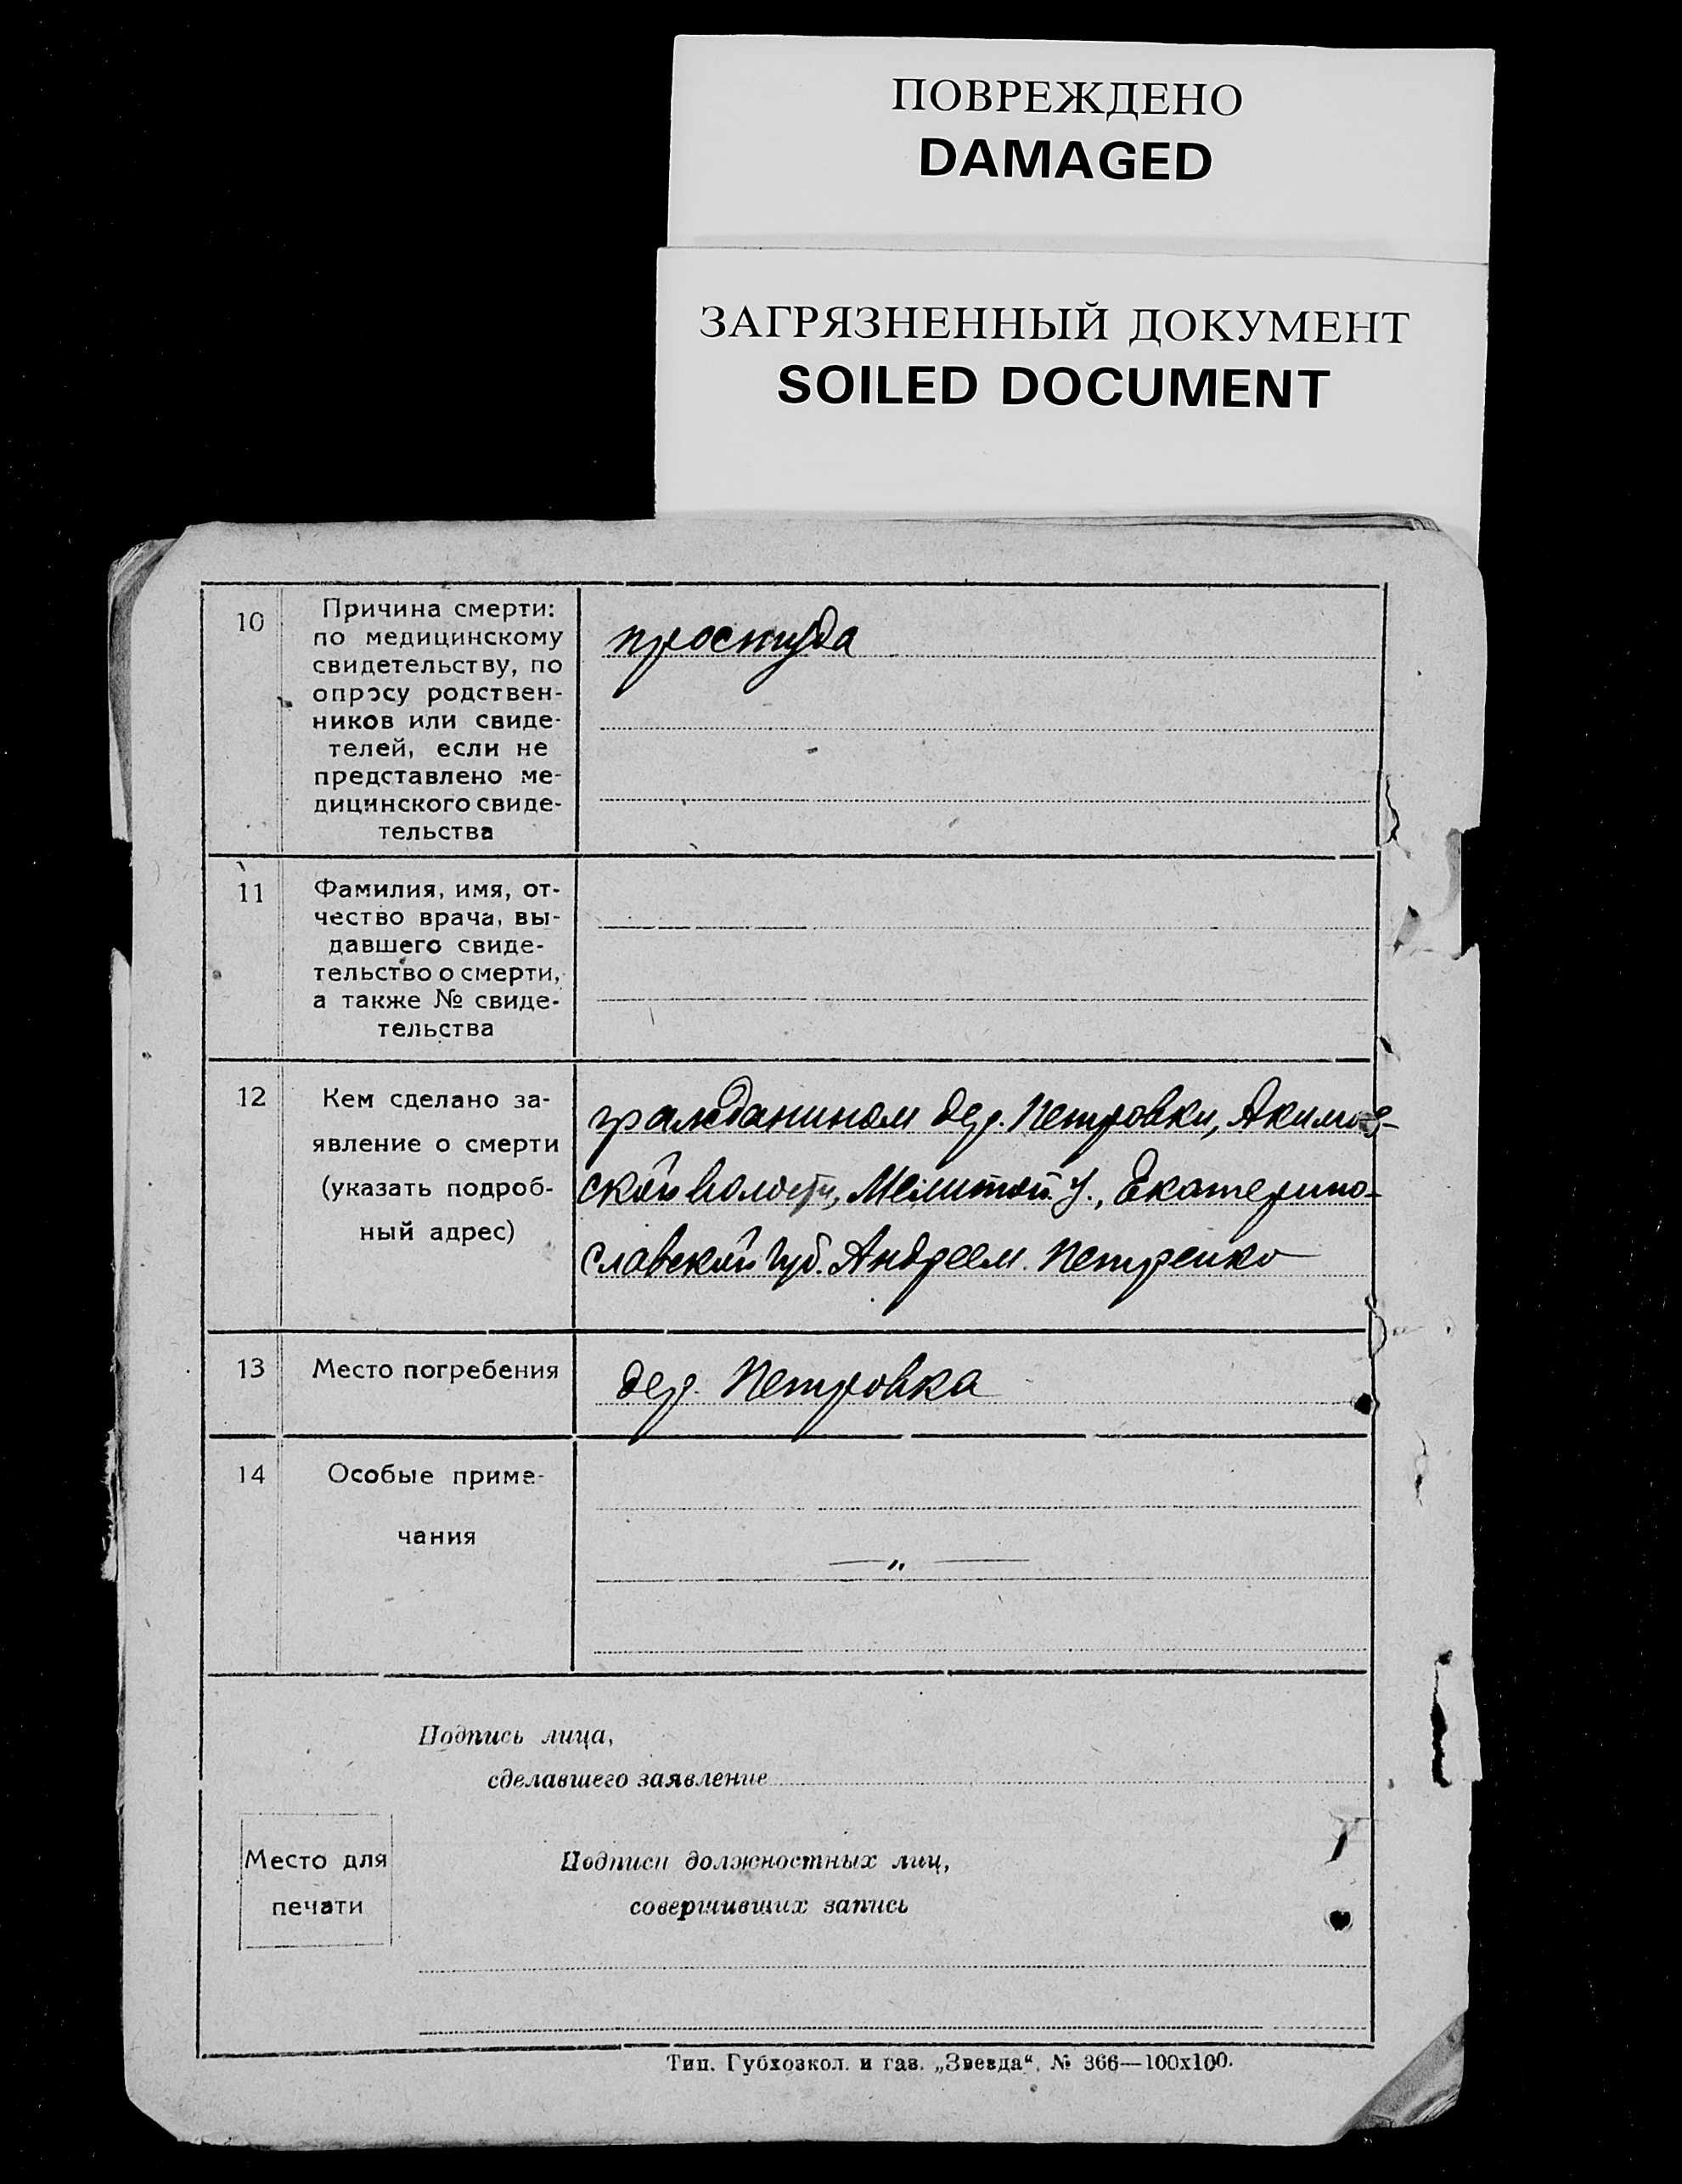 ПОВРЕЖДЕНО
DAMAGED
ЗАГРЯЗНЕННЫЙ ДОКУМЕНТ
SOILED DOCUMENT
10
Причина смерти:
по медицинскому
свидетельству, по
опросу родствен-
ников или свиде-
телей, если не
представлено ме-
дицинского свиде-
тельства
простуда
11
Фамилия, имя, от-
чество врача, вы-
давшего свиде-
тельство о смерти,
а также № свиде-
тельства
12
Кем сделано за-
явление о смерти
(указать подроб-
ный адрес)
гражданином дер. Петровки, Акимов-
ской волости, Мелитой у., Екатерино-
славской губ. Андреем Петренко
13
Место погребения
дер. Петровка
14
Особые приме-
чания
— „ —
Подпись лица,
сделавшего заявление
Место для
печати
Подписи должностных лиц,
совершивших запись
Тип. Губхозкол. и газ. „Звезда“. № 366—100х100.